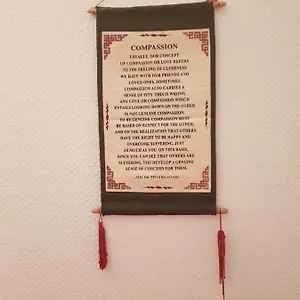 COMPASSION
USUALLY, OUR CONCEPT
OF COMPASSION OR LOVE REFERS
TO THE FEELING OF CLOSENESS
WE HAVE WITH OUR FRIENDS AND
LOVED ONES. SOMETIMES
COMPASSION ALSO CARRIES A
SENSE OF PITY. THIS IS WRONG.
ANY LOVE OR COMPASSION WHICH
ENTAILS LOOKING DOWN ON THE OTHER
IS NOT GENUINE COMPASSION.
TO BE GENUINE COMPASSION MUST
BE BASED ON RESPECT FOR THE OTHER,
AND ON THE REALIZATION THAT OTHERS
HAVE THE RIGHT TO BE HAPPY AND
OVERCOME SUFFERING, JUST
AS MUCH AS YOU. ON THIS BASIS,
SINCE YOU CAN SEE THAT OTHERS ARE
SUFFERING, YOU DEVELOP A GENUINE
SENSE OF CONCERN FOR THEM.
DALAI LAMA